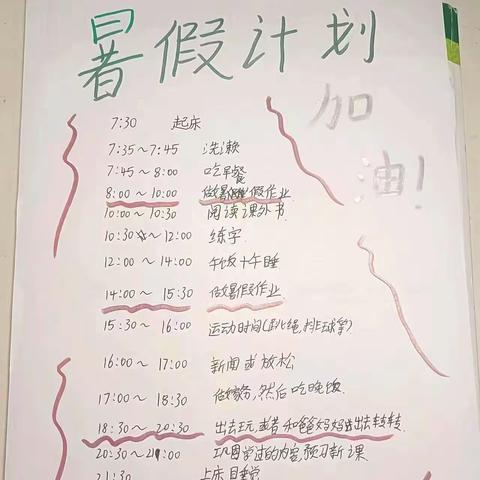 暑假计划
加油!
7:30 起床
7:35~7:45 洗漱
7:45~8:00 吃早餐
8:00~10:00 做暑假作业
10:00~10:30 阅读课外书.
10:30~12:00 练字.
12:00~14:00 午饭+午睡
14:00~15:30 做暑假作业
15:30~16:00 运动时间(跳绳,排球等)
16:00~17:00 新闻或放松
17:00~18:30 做家务,然后吃晚饭.
18:30~20:30 出去玩,或者和爸爸妈妈出去转转.
20:30~21:00 巩固学过的内容,预习新课
21:30 上床睡觉